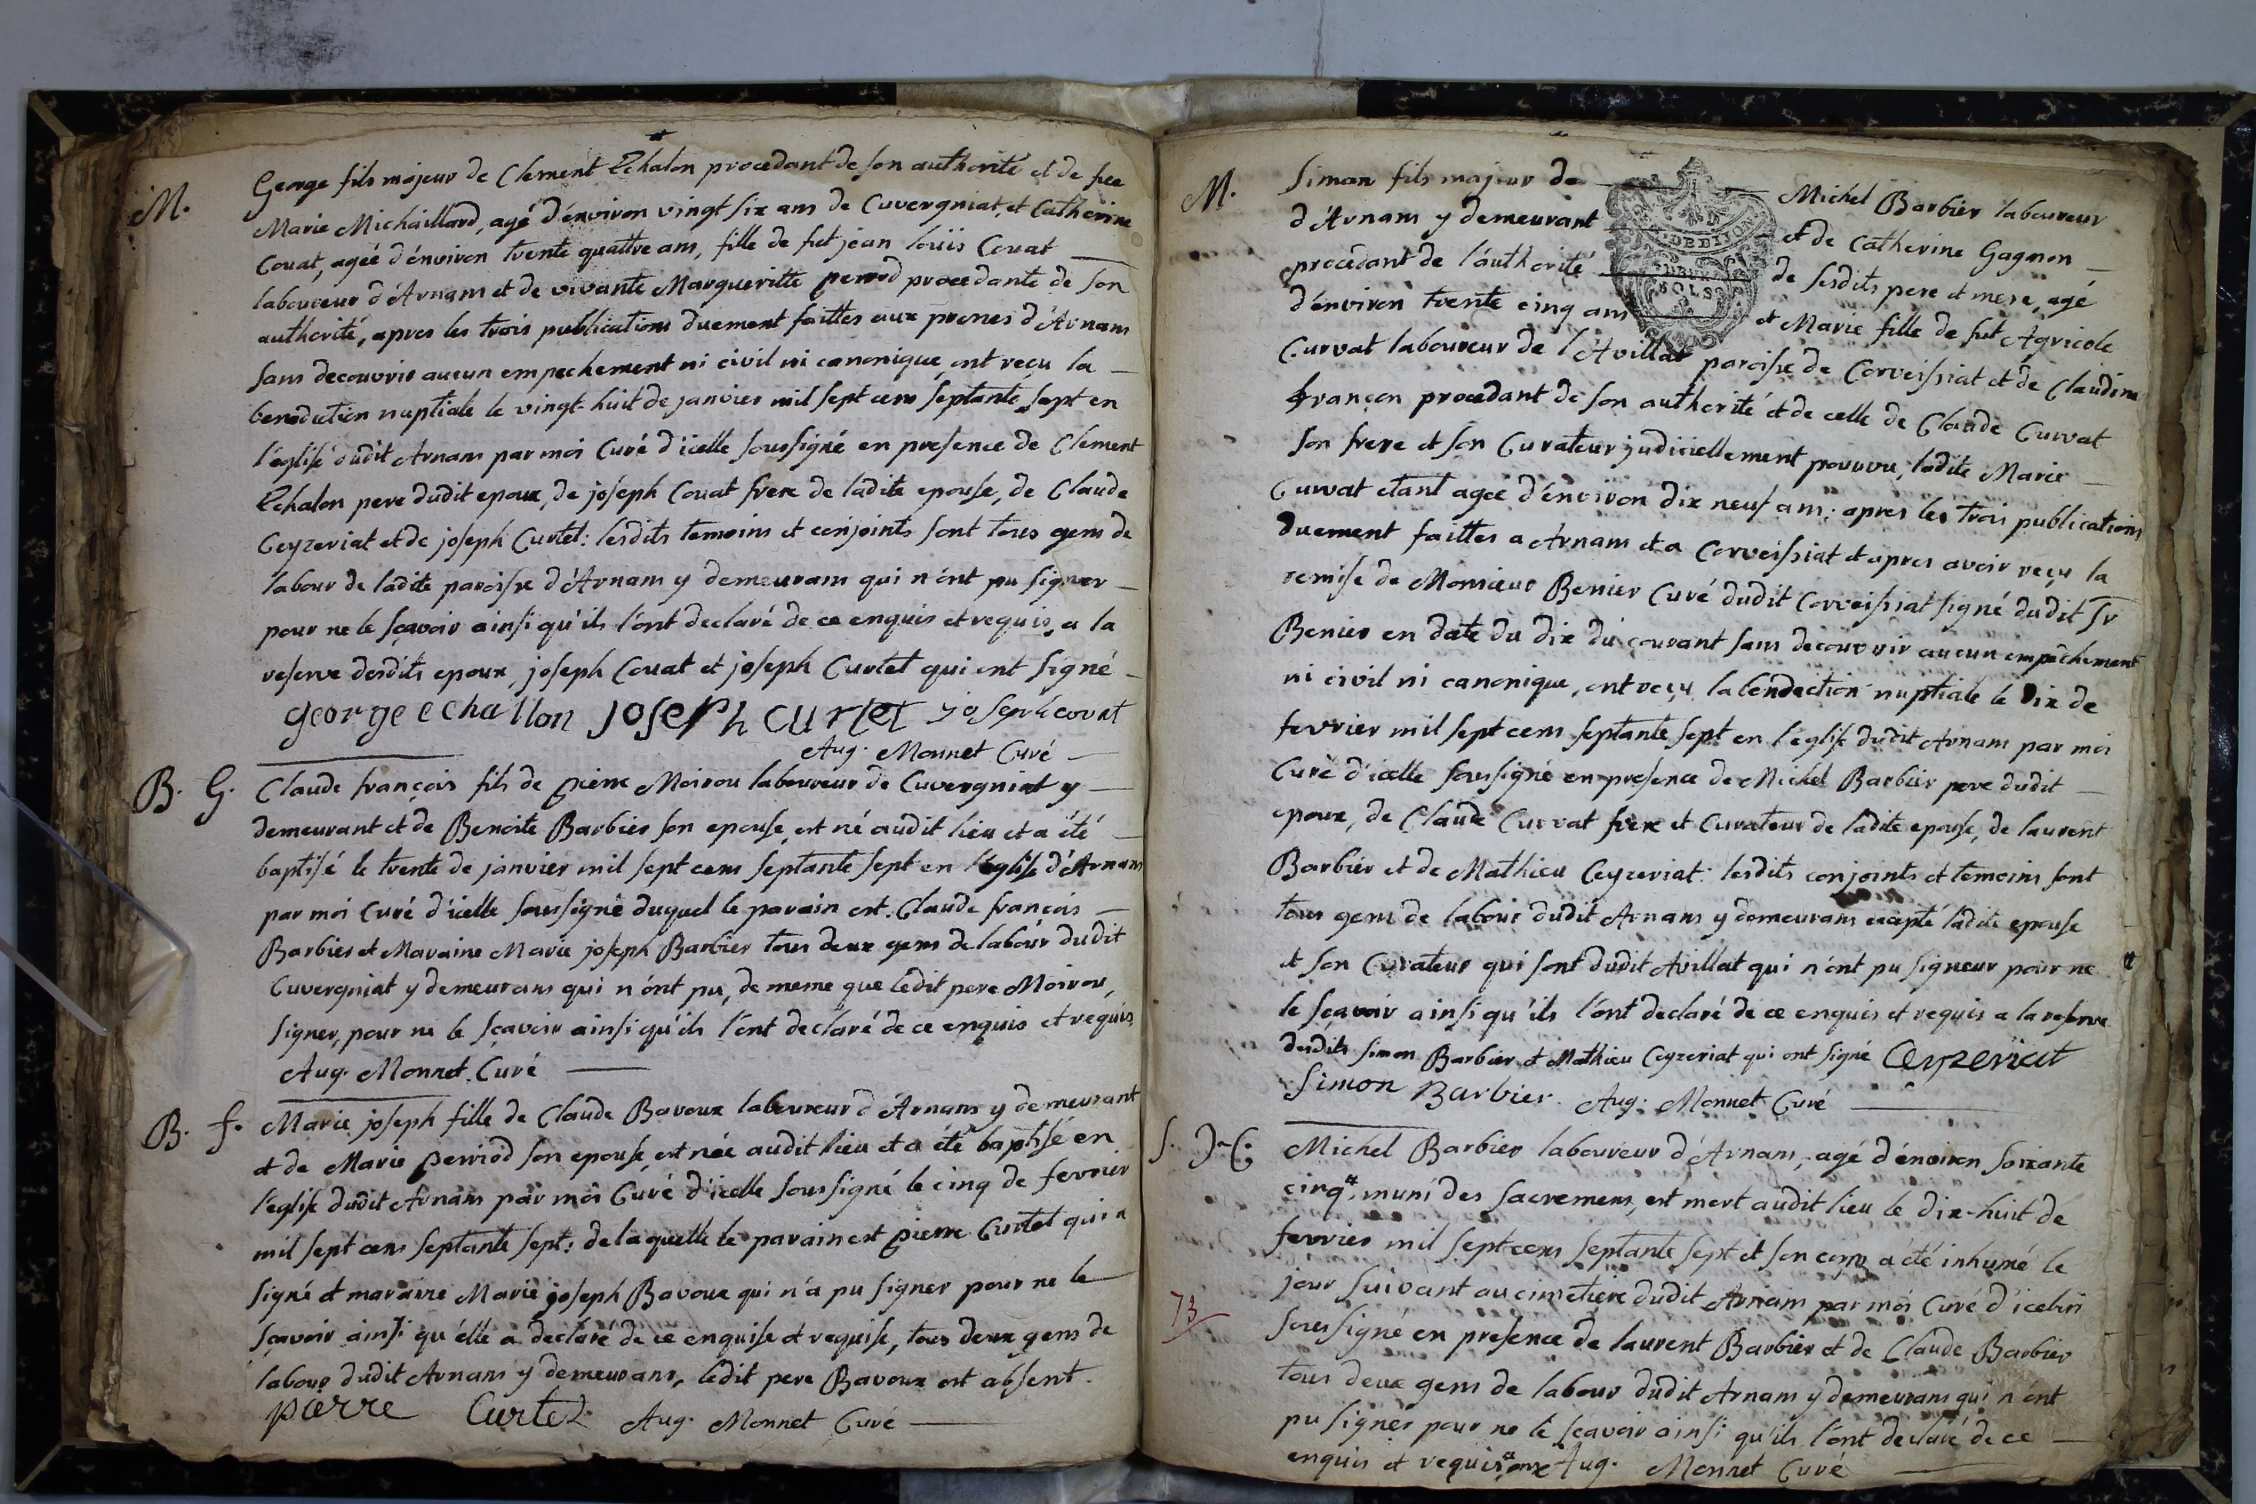 M. George fils majeur de Clement Echalon procedant de son authorité et de feu
Marie Michaillard, agé d'énviron vingt six ans de Cuvergniat, et Catherine
Couat, agéé d'énviron trente quattre ans, fille de fut jean loüis Couat
laboureur d'Arnans et de vivante Margueritte perrod procedante de son
authorité, apres les trois publications duement faittes aux prones d'Arnans
sans decouvrir aucun empechement ni civil ni canonique, ont reçu la
benediction nuptiale le vingt-huit de janvier mil sept cens septante sept en
l'église dudit Arnans par moi Curé d'icelle soussigné en presence de Clement
Echalon pere dudit epoux, de joseph Couat frere de ladite epouse, de Claude
Ceyzeriat et de joseph Curtet: lesdits temoins et conjoints sont tous gens de
labour de ladite paroisse d'Arnans y demeurans qui n'ónt pu signer
pour ne le sçavoir ainsi qu'ils l'ónt declaré de ce enquis et requis, a la
reserve desdits epoux, joseph Couat et joseph Curtet qui ont signé
george echallon joseph curtet joseph covat
Aug. Monnet Curé
B. G. Claude françois fils de pierre Moirou laboureur de Cuvergniat y
demeurant et de Benoite Barbier son epouse, est né audit lieu et a été
baptisé le trente de janvier mil sept cens séptante sept en l'église d'Arnans
par moi Curé d'icelle soussigné duquel le parain est Claude françois
Barbier et Maraine Marie joseph Barbier tous deux gens de labour dudit
Cuvergniat y demeurans qui n'ónt pu, de meme que ledit pere Moirou,
signer, pour ne le sçavoir ainsi qu'ils l'ónt declaré de ce enquis et requis
Aug. Monnet Curé
B. f. Marie joseph fille de Claude Bavoux laboureur d'Arnans y demeurant
et de Marie perriod son epouse, est née audit lieu et a été baptisé en
l'église dudit Arnans par moi Curé d'icelle soussigné le cinq de fevrier
mil sept cens septante sept: de laquelle le parain est pierre Curtet qui a
signé et maraine Marie joseph Bavoux qui n'a pu signer pour ne le
sçavoir ainsi qu'elle a declaré de ce enquise et requise, tous deux gens de
labour dudit Arnans y demeurans, ledit pere Bavoux est absent.
pierre Curtet Aug. Monnet Curé
M. Simon fils majeur de Michel Barbier laboureur
d'Arnans y demeurant et de Catherine Gagnon
procedant de l'authorité de sesdits pere et mere, agé
d'énviron trente cinq ans et Marie fille de fut Agricole
Curvat laboureur de l'Avillat paroisse de Corveissiat et de Claudine
françon procedant de son authorité et de celle de Claude Curvat
son frere et son Curateur judiciellement pourvu; ladite Marie
Curvat etant agée d'énviron dix neuf ans: apres les trois publications
duement faittes a Arnans et a Corveissiat et apres avoir reçu la
remise de Monsieur Benier Curé dudit Corveissiat signé dudit Sr
Benier en date du dix du courant sans decouvrir aucun empêchement
ni civil ni canonique, ont reçu la bendiction nuptiale le dix de
fevrier mil sept cens septante sept en l'église dudit Arnans par moi
Curé d'icelle soussigné en presence de Michel Barbier pere dudit
epoux, de Claude Curvat frere et Curateur de ladite epouse, de laurent
Barbier et de Mathieu Ceyzeriat: lesdits conjoints et temoins sont
tous gens de labour dudit Arnans y demeurans excepté ladite epouse
et son Curateur qui sont dudit Avillat qui n'ónt pu signeur pour ne
le sçavoir ainsi qu'ils l'ónt declaré de ce enquis et requis a la reserve
desdits simon Barbier et Mathieu Ceyzeriat qui ont signé Ceyzeriat
Simon Barbier. Aug. Monnet Curé
S. D. C. Michel Barbier laboureur d'Arnans, agé d'énviron soixante
cinq, muni des sacremens, est mort audit lieu le dix-huit de
fevrier mil sept cens septante sept et son corps a été inhumé le
jour suivant au cimetiere dudit Arnans par moi Curé d'icelui
73
soussigné en presence de laurent Barbier et de Claude Barbier
tous deux gens de labour dudit Arnans y demeurans qui n'ónt
pu signer pour ne le sçavoir ainsi qu'ils l'ónt declaré de ce
enquis et requis ans Aug. Monnet Curé